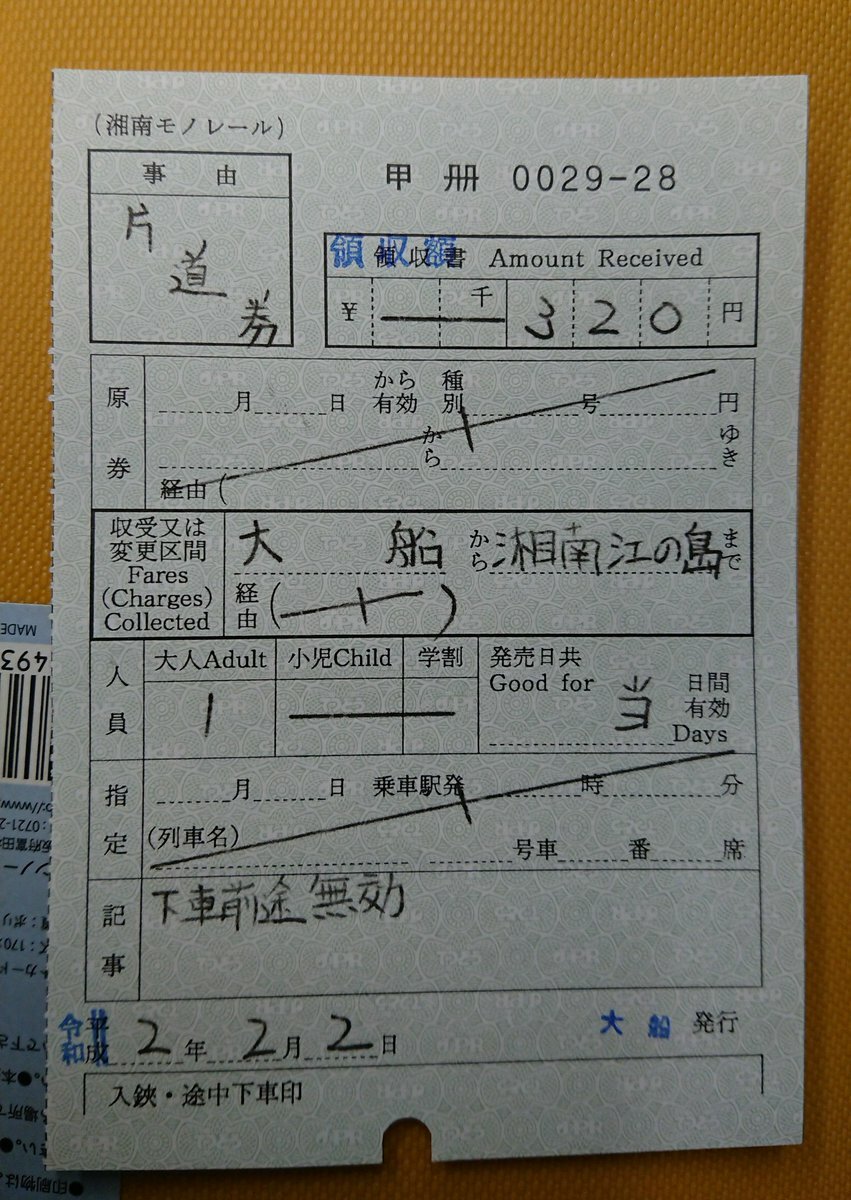 (湘南モノレール)
事 由
甲 册 0029-28
片道券
領収額
領収書 Amount Received
¥ 千 320 円
原券
月 日 から有効 種別 号 円
から ゆき
経由 (
収受又は変更区間
Fares
(Charges)
Collected
大 船 から 湘南江の島 まで
経由 ( )
人員
大人Adult 小児Child 学割
1
発売日共
Good for 当 日間有効
Days
指定
月 日 乗車駅発 時 分
(列車名)
号車 番 席
記事
下車前途無効
令和 平成 2年 2月 2日
大船 発行
入鋏・途中下車印
MADE
493
●印刷物は